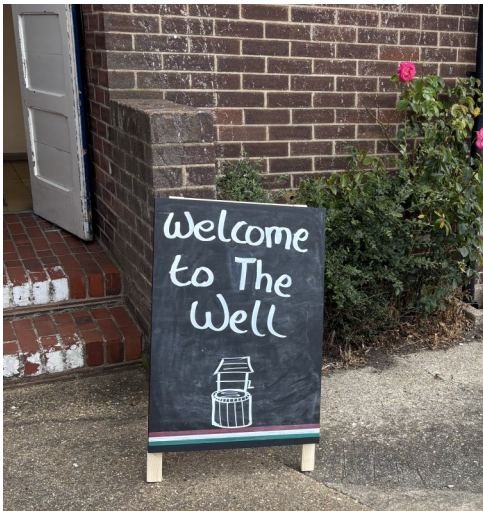 Welcome
to The
Well